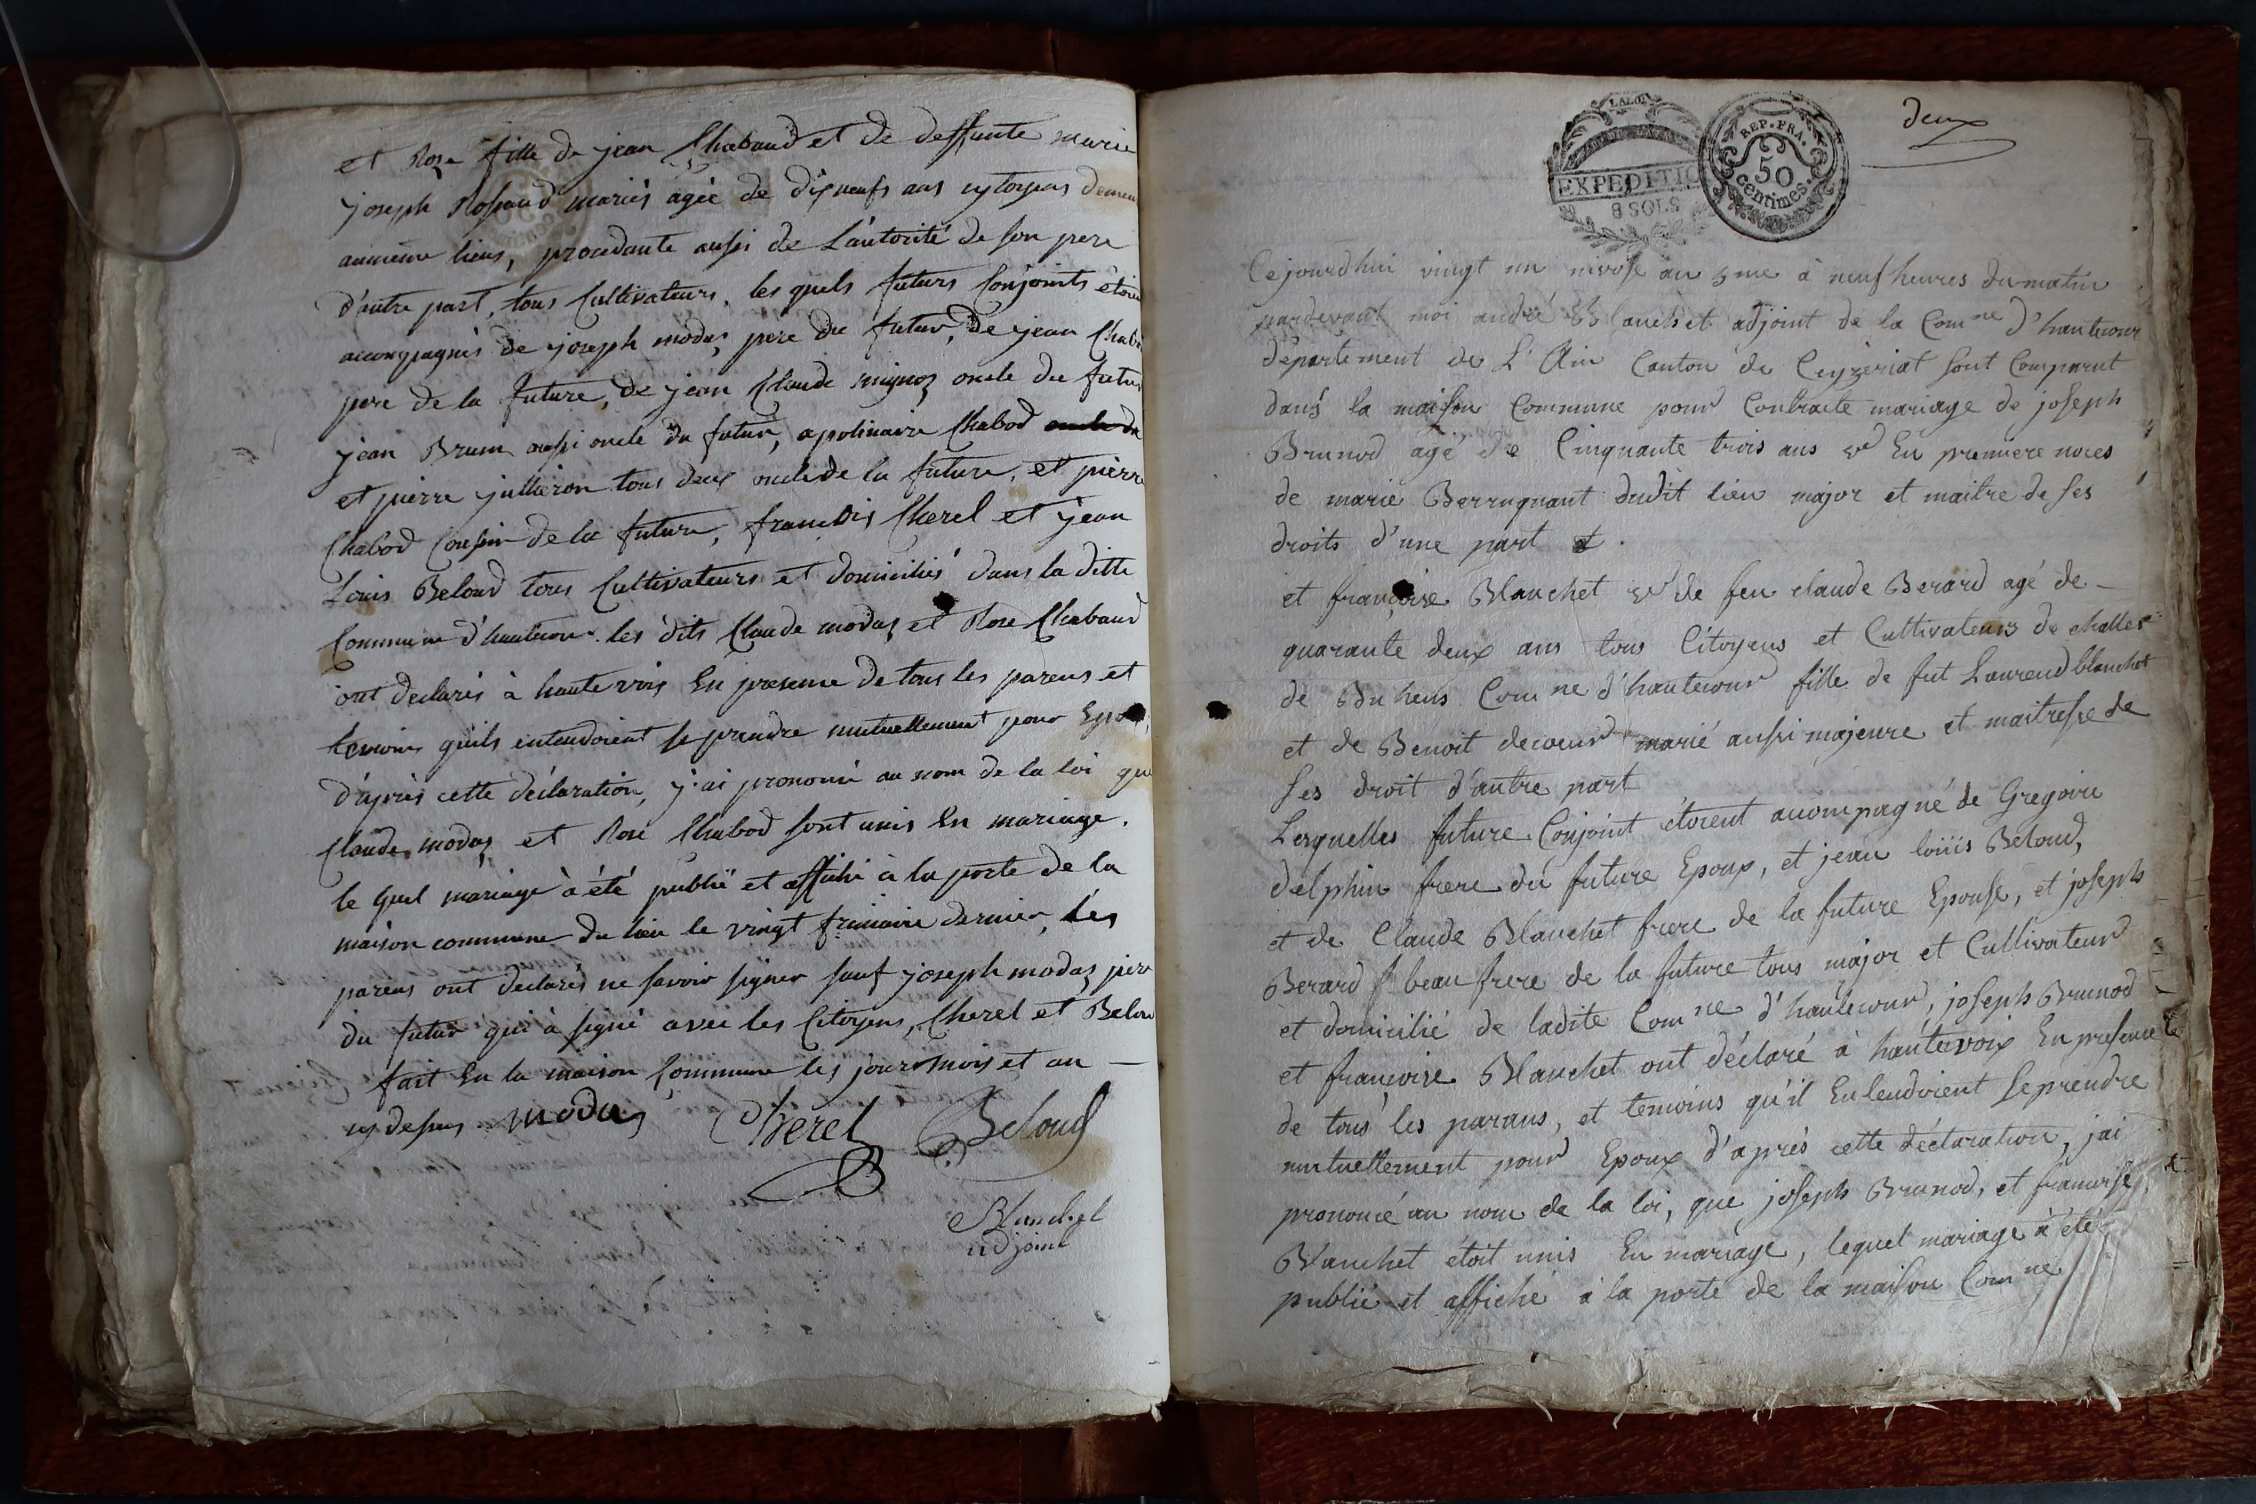 et Rose fille de jean Chabaud et de deffunte marie
joseph Rossand mariés agée de dixneufs ans cytoyens demeu
aumême lieux, procedante aussi de L'autorité de son pere
d'autre part, tous Cultivateurs. les quels futurs Conjoints étoie
accompagnés de joseph modas pere du futur, de jean Chab
pere de la future, de jean Claude mignoz oncle du futur
jean Brum aussi oncle du futur, apolinaire Chabod oncle du
et pierre jullieron tous deux oncle de la future, et pierre
Chabod Cousin de la future, francois Cherel et jean
Louis Beloud tous Cultivateurs et domiciliés dans la ditte
Commune d'hautecour. les dits Claude modas et Rose Chabaud
ont declarés à haute voix En presence de tous les parens et
temoins quils entendoient se prendre mutuellement pour Epo
d'après cette déclaration, j'ai prononcé au nom de la loi que
Claude modas et Rose Chabod sont unis En mariage.
le quel mariage à été publié et affiché à la porte de la
maison commune du lieu le vingt frimaire dernier, les
parens ont declarés ne savoir signer sauf joseph modas pere
du futur qui à signé avec les Citoyens, Cherel et Belou
fait En la maison Commune les jour mois et an
cy dessus modas Cherel Beloud
Blanchet
adjoint
LALOI
EXPEDITIO
8 SOLS
REP. FRA.
50
centimes.
deux
Cejourdhui vingt un nivose an 5me à neuf heures du matin
pardevant moi andré Blanchet adjoint de la Comne d'hautecour
département de L'Ain Canton de Ceyzeriat sont Comparut
dans la maison Commune pour Contracte mariage de joseph
Brunod agé de Cinquante trois ans vf En premiere noces
de marie Berruquant dudit lieu major et maitre de ses
droits d'une part et.
et françoise Blanchet vve de feu claude Berard agé de
quarante deux ans tous Citoyens et Cultivateurs de challes
de Buhens Comne d'hautecour fille de fut Laurend blanchet
et de Benoit decoeur marié aussi majeure et maitresse de
ses droit d'autre part
Lesquelles future Conjoint étoient acompagné de Gregoire
delphin frere du future Epoux, et jean louis Beloud,
et de Claude Blanchet frere de la future Epouse, et joseph
Berard beau frere de la future tous major et Cultivateur
et domicilié de ladite Comne d'hautecour, joseph Brunod
et françoise Blanchet ont déclaré à hautevoix En presence
de tous les parans, et temoins qu'il Entendoient se prendre
mutuellement pour Epoux d'après cette déctaration, jai
prononcé au nom de la loi, que joseph Brunod, et francoise
Blanchet étoit unis En mariage, lequel mariage à été
publié et affiché à la porte de la maison Comne